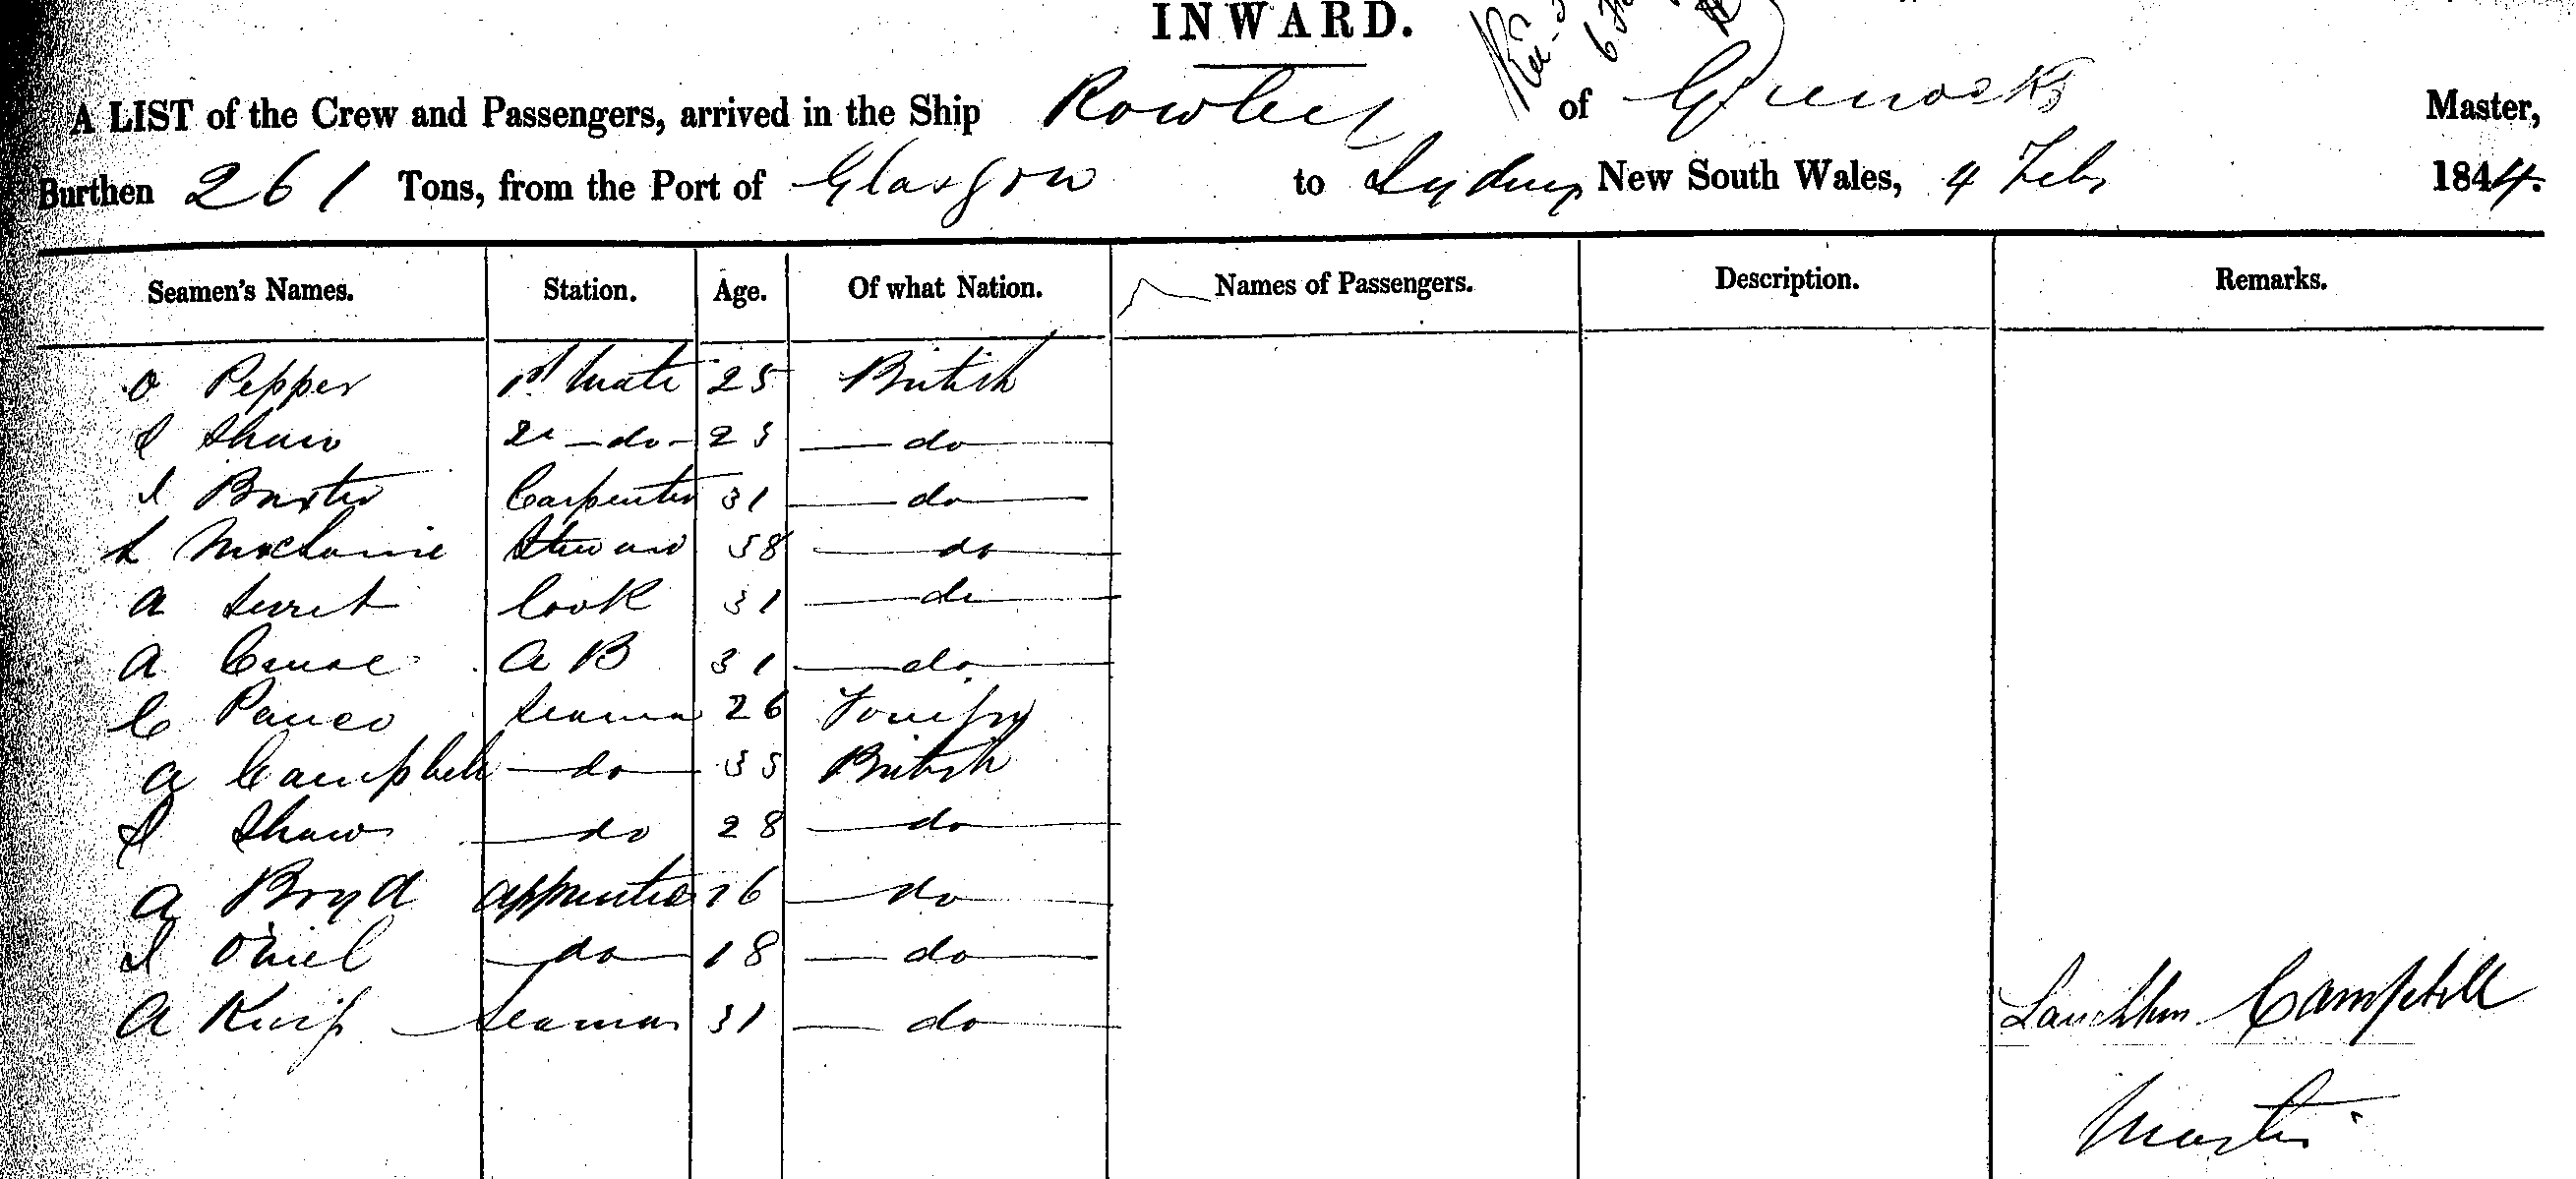 INWARD.
A LIST of the Crew and Passengers, arrived in the Ship Rowley of Greenock Master,
Burthen 261 Tons, from the Port of Glasgow to Sydney New South Wales, 4 Feb 1844.
Seamen's Names. Station. Age. Of what Nation. Names of Passengers. Description. Remarks.
O Pepper 1st Mate 25 British
Shaw 2d do 23 do
Baxter Carpenter 31 do
Steward 38 do
A Cook 31 do
A A B 31 do
C Seaman 26
A Campbell do 35 British
Shaw do 28 do
A Boyd apprentice 16 do
I do 18 do
A Seaman 31 do
Lauchlan Campbell
Master